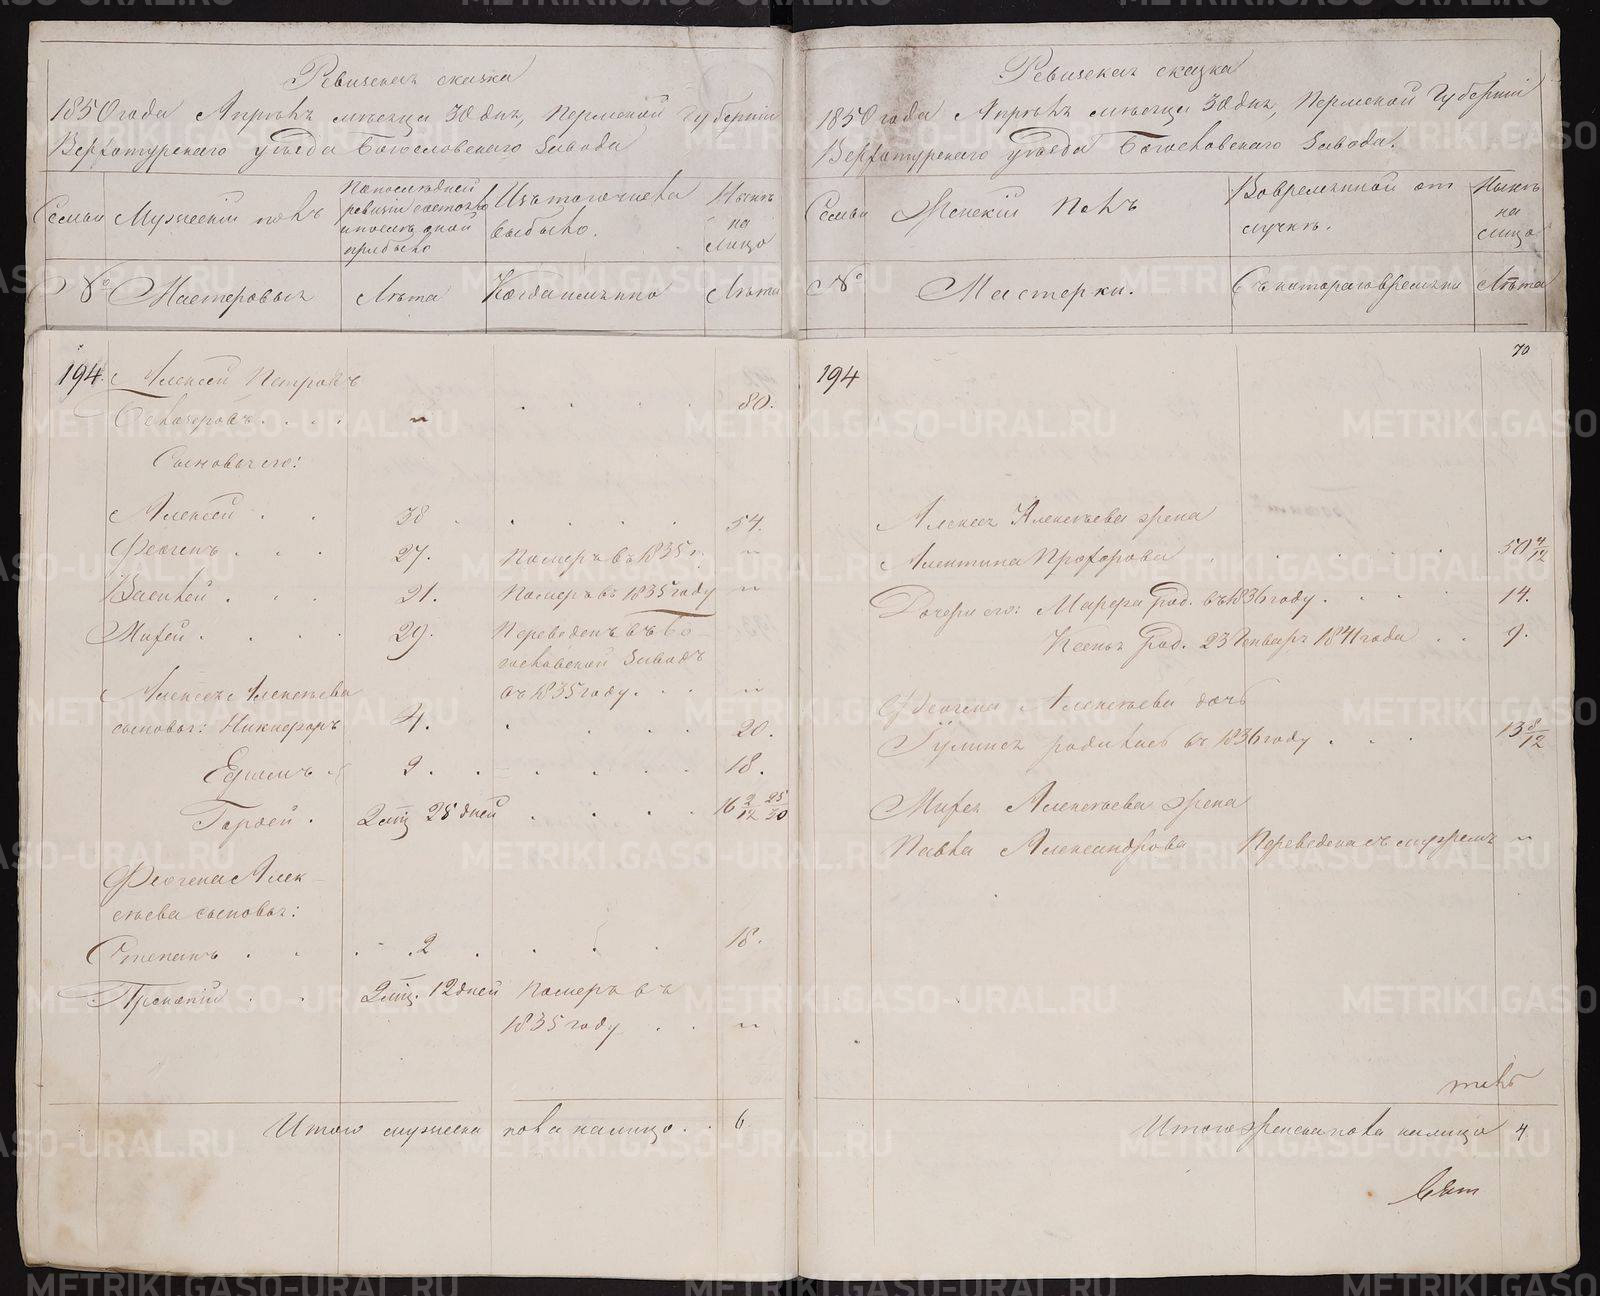 Ревизская сказка
1850 года Апрѣля мѣсяца 30 дня, Пермской Губерніи
Верхотурскаго уѣзда Богословскаго Завода
Семьи
Мужескій полъ
По последней
ревизіи состояло
и после оной
прибыло
Изъ того числа
выбыло.
Нынѣ
на
лицо
№
Мастеровыя
Лѣта
Когда именно
Лѣта
194.
Алексей Петровъ
80.
Сыновья его:
Алексей . . 38 54.
Феогенъ . . . 27. Померъ въ 1835 г. "
Василей . . . 21. Померъ въ 1835 году "
Михей . . . . 29. Переведенъ въ Бо-
гословской Заводъ
въ 1835 году. . . "
Алексея Алексѣева
сыновья: Никифоръ 4. 20.
Ефимъ 2. 18.
Гордей . 2 мц 25 дней 16 2/12 25/30
Феогена Алек-
сѣева сыновья:
Степанъ . . . 2 18.
Прокопій . . 2 мц. 12 дней Померъ въ
1835 году . . "
Итого мужеска пола налицо . . 6
Ревизская сказка
1850 года Апрѣля мѣсяца 30 дня, Пермской Губерніи
Верхотурскаго уѣзда Богословскаго Завода.
Семьи
Женскій Полъ
Во временной от
лучкѣ.
Нынѣ
на
лицо
№
Мастерки.
Съ котораго времени
Лѣта
70
194
Алексея Алексѣева жена
Алевтина Прохорова 50 4/12
Дочери его: Марфа род. въ 1836 году . . . 14.
Ксенья Род. 23 Генваря 1841 года . . 9.
Феогена Алексѣева дочь
Гулинея родилась въ 1836 году . . . 13 8/12
Михея Алексѣева жена
Павла Александрова Переведена съ мужемъ "
Итого женска пола налицо 4